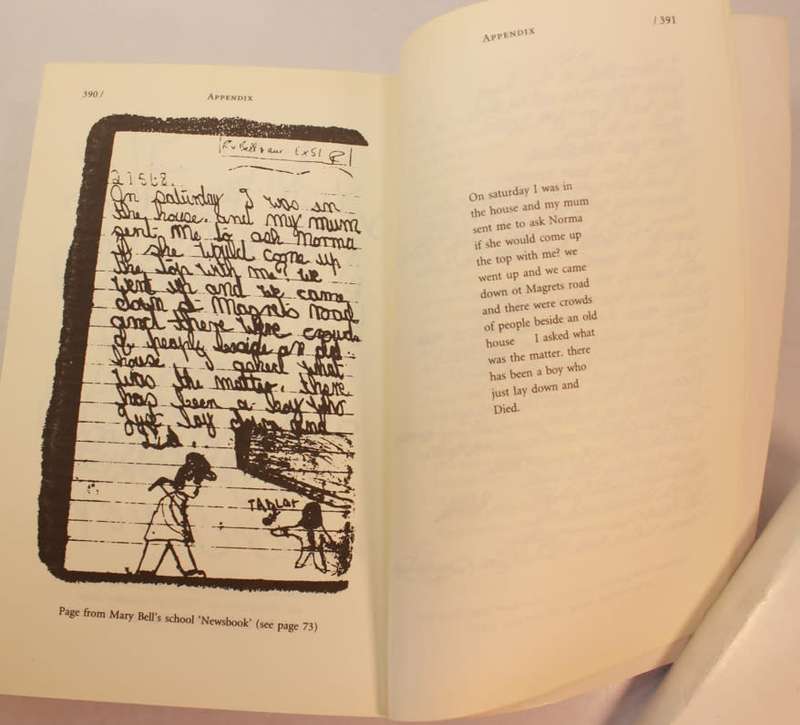 390 /
APPENDIX
R v Bell & anr Ex 51
27568.
On saturday I was in
the house. and my mum
sent me to ask Norma
if she would come up
the top with me? we
went up and we came
down at Magrets road
and there were crowds
of people beside an old
house I asked what
was the matter. there
has been a boy who
just lay down and
Died.
TABLOt
Page from Mary Bell's school 'Newsbook' (see page 73)
APPENDIX
/ 391
On saturday I was in
the house and my mum
sent me to ask Norma
if she would come up
the top with me? we
went up and we came
down ot Magrets road
and there were crowds
of people beside an old
house I asked what
was the matter. there
has been a boy who
just lay down and
Died.